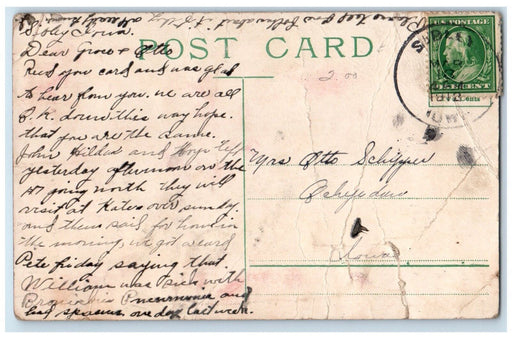 Dear Grace & Otto
POST CARD
Rec'd you card and was glad
to hear from you. we are all
O.K. down this way hope
that you are the same.
John Hilda and Hope left
yesterday afternoon on the
47 going north they will
visit at Kates over sunday
and then said for home in
the morning, we got a card
Pete friday saying that
William was sick with
Pneumonia and
had spasms one day last week.
U.S. POSTAGE
1913
IOWA
2.00
Mrs Otto Schipper
Ocheyedan
Iowa